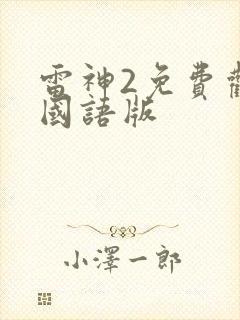 雷神2免費
國語版
小澤一郎